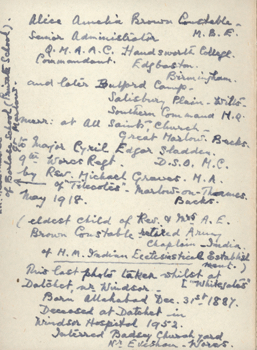 Alice Amelia Brown Constable -
M.B.E.
Senior Administrator
Q.M.A.A.C. Handsworth College.
Commandant. Edgbaston.
Birmingham.
and later Bulford Camp -
Salisbury Plain - Wilts -
Southern Command H.Q.
marr: at All Saints - Church -
Great Marlow. Bucks.
to Major Cyril Edgar Sladden
9th Worcs Regt. D.S.O. M.C.
by Rev. Michael Graves. M.A.
of "Toleodes" Marlow-on-Thames.
May 1918. Bucks.
(eldest child of Rev. & Mrs A.E.
Brown Constable retired Army
Chaplain - India.
of H.M. Indian Ecclesiastical Establish
ment.)
This last photo taken whilst at
"Whitegates"
Datchet, nr Windsor -
Born Allahabad Dec. 31st 1887.
Deceased at Datchet in
Windsor Hospital 1952.
Interred Badsey Churchyard
Nr. Evesham - Worcs.
of Borlase School (Private School)
Marlow.